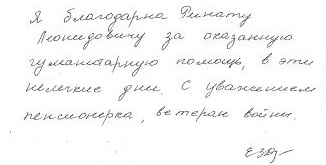 Я благодарна Ринату
Леонидовичу за оказанную
гуманитарную помощь, в эти
нелегкие дни. С уважением
пенсионерка, ветеран войны.